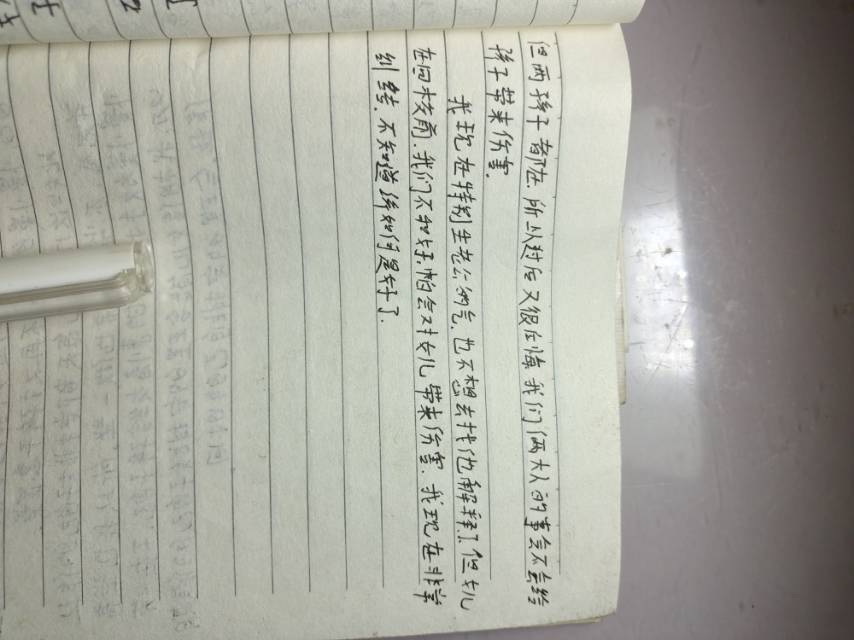 但两孩子都在,所以过后又很后悔我们俩大人的事会不会给
孩子带来伤害.
我现在特别生老公的气.也不想去找他解释了.但女儿
在回本校前.我们不和好.怕会对女儿带来伤害.我现在非常
纠结.不知道该如何是好了.